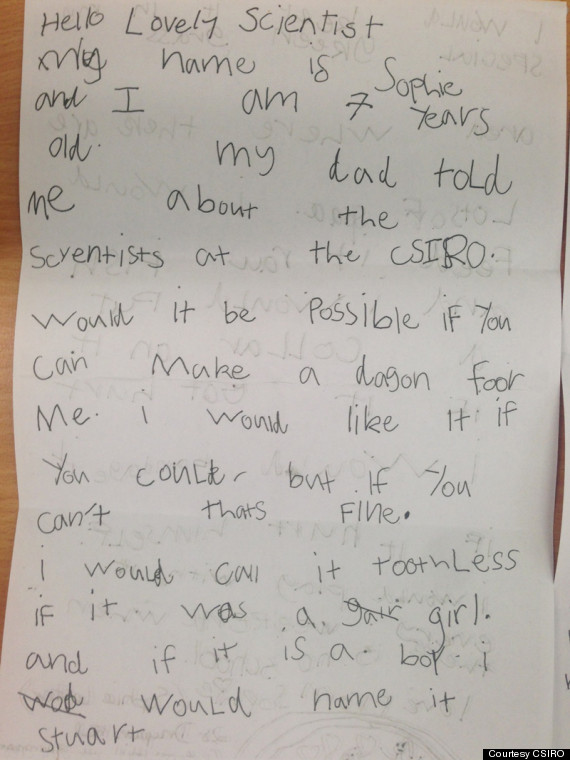 Hello Lovely Scientist
my name is Sophie
and I am 7 Years
old. my dad told
me about the
scyentists at the CSIRO.
Would it be Possible if You
can Make a dagon foor
Me. i would like it if
You could but if You
can't thats Fine.
i would call it toothLess
if it was a gair girl.
and if it is a boy i
would name it
Stuart
Courtesy CSIRO